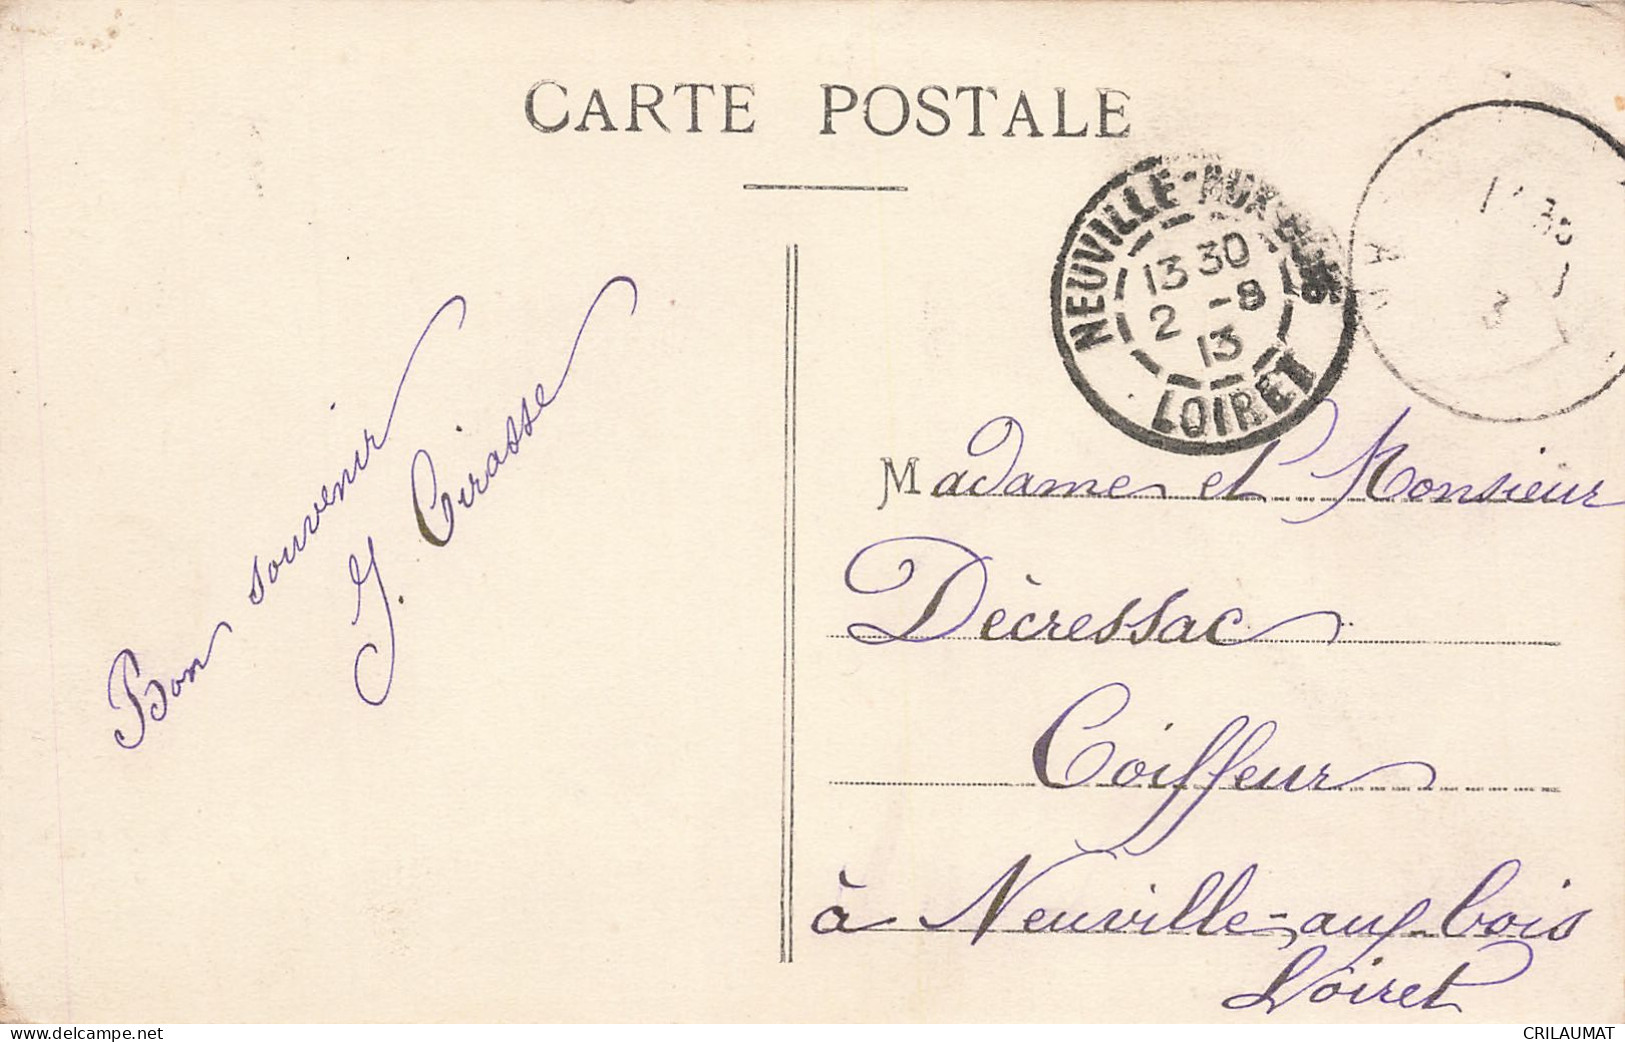 CARTE POSTALE
NEUVILLE-AUX-BOIS
13 30
2 -8
13
LOIRET
Bon souvenir
J. Cirasse
Madame et Monsieur
Décressac
Coiffeur
à Neuville-aux-bois
Loiret
delcampe.net
CRILAUMAT